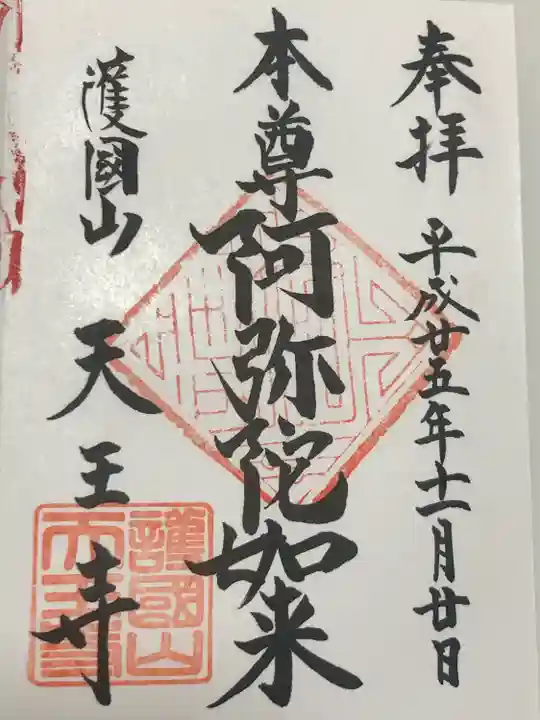 奉拝 平成廿五年十一月廿日
本尊阿弥陀如来
護國山 天王寺
護國山
天王寺